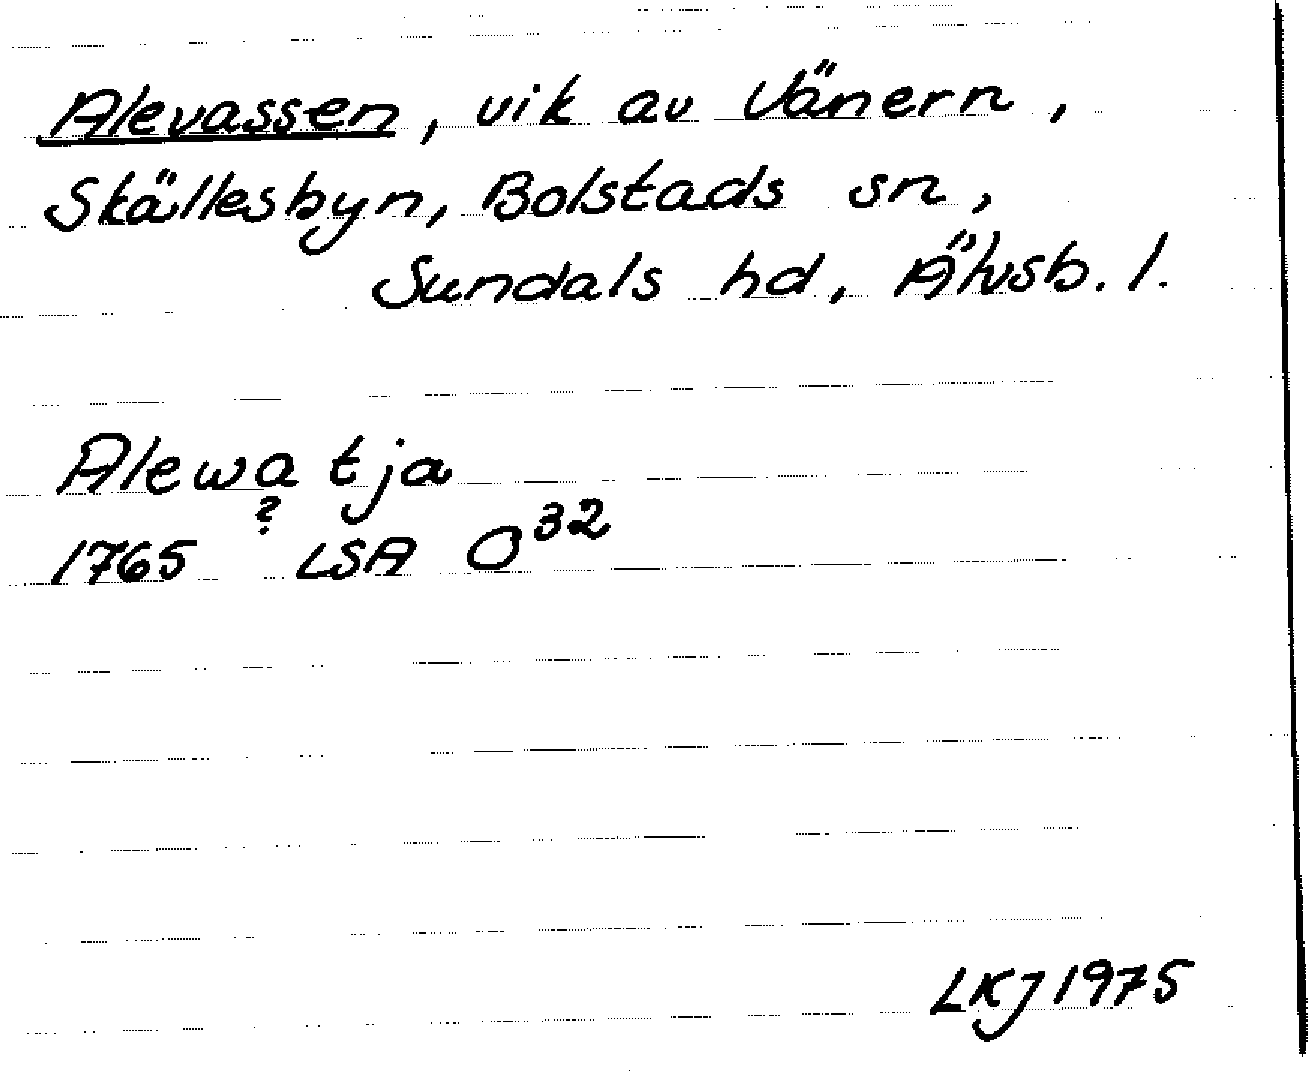 Alevassen, vik av Vänern,
Skällesbyn, Bolstads sn,
Sundals hd, Älvsb. l.
Alewa tja
?
1765 LSA O32
LKJ 1975